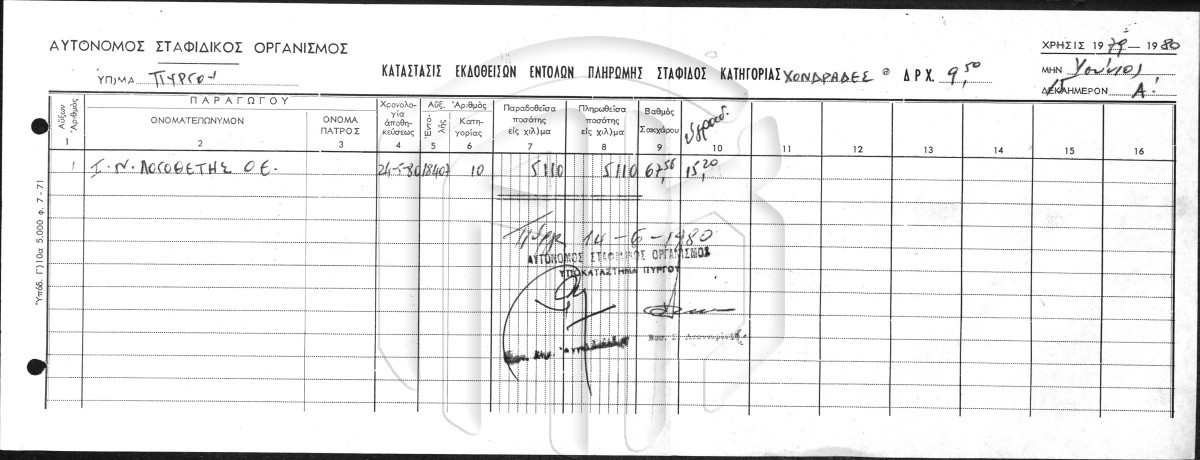 ΑΥΤΟΝΟΜΟΣ ΣΤΑΦΙΔΙΚΟΣ ΟΡΓΑΝΙΣΜΟΣ
ΧΡΗΣΙΣ 1979 — 1980
ΥΠ)ΜΑ ΠΥΡΓΟΥ
ΚΑΤΑΣΤΑΣΙΣ ΕΚΔΟΘΕΙΣΩΝ ΕΝΤΟΛΩΝ ΠΛΗΡΩΜΗΣ ΣΤΑΦΙΔΟΣ ΚΑΤΗΓΟΡΙΑΣ ΧΟΝΔΡΑΔΕΣ @ ΔΡΧ. 9,50
ΜΗΝ Ιούνιος
ΔΕΚΑΗΜΕΡΟΝ Α'
Αὔξων Ἀριθμὸς
ΠΑΡΑΓΩΓΟΥ
ΟΝΟΜΑΤΕΠΩΝΥΜΟΝ
ΟΝΟΜΑ ΠΑΤΡΟΣ
Χρονολογία ἀποθηκεύσεως
Αὔξ. Ἀριθμὸς
Ἐντολῆς
Κατηγορίας
Παραδοθεῖσα ποσότης εἰς χιλ)μα
Πληρωθεῖσα ποσότης εἰς χιλ)μα
Βαθμὸς Σακχάρου
1 2 3 4 5 6 7 8 9 10 11 12 13 14 15 16
1 Ι. Ν. ΛΟΓΟΘΕΤΗΣ Ο Ε. 24-5-80 18407 10 5110 5110 67,56 15,20
14-6-1980
ΑΥΤΟΝΟΜΟΣ ΣΤΑΦΙΔΙΚΟΣ ΟΡΓΑΝΙΣΜΟΣ
ΥΠΟΚΑΤΑΣΤΗΜΑ ΠΥΡΓΟΥ
Ὑπόδ. Γ)10α 5.000 φ. 7-71